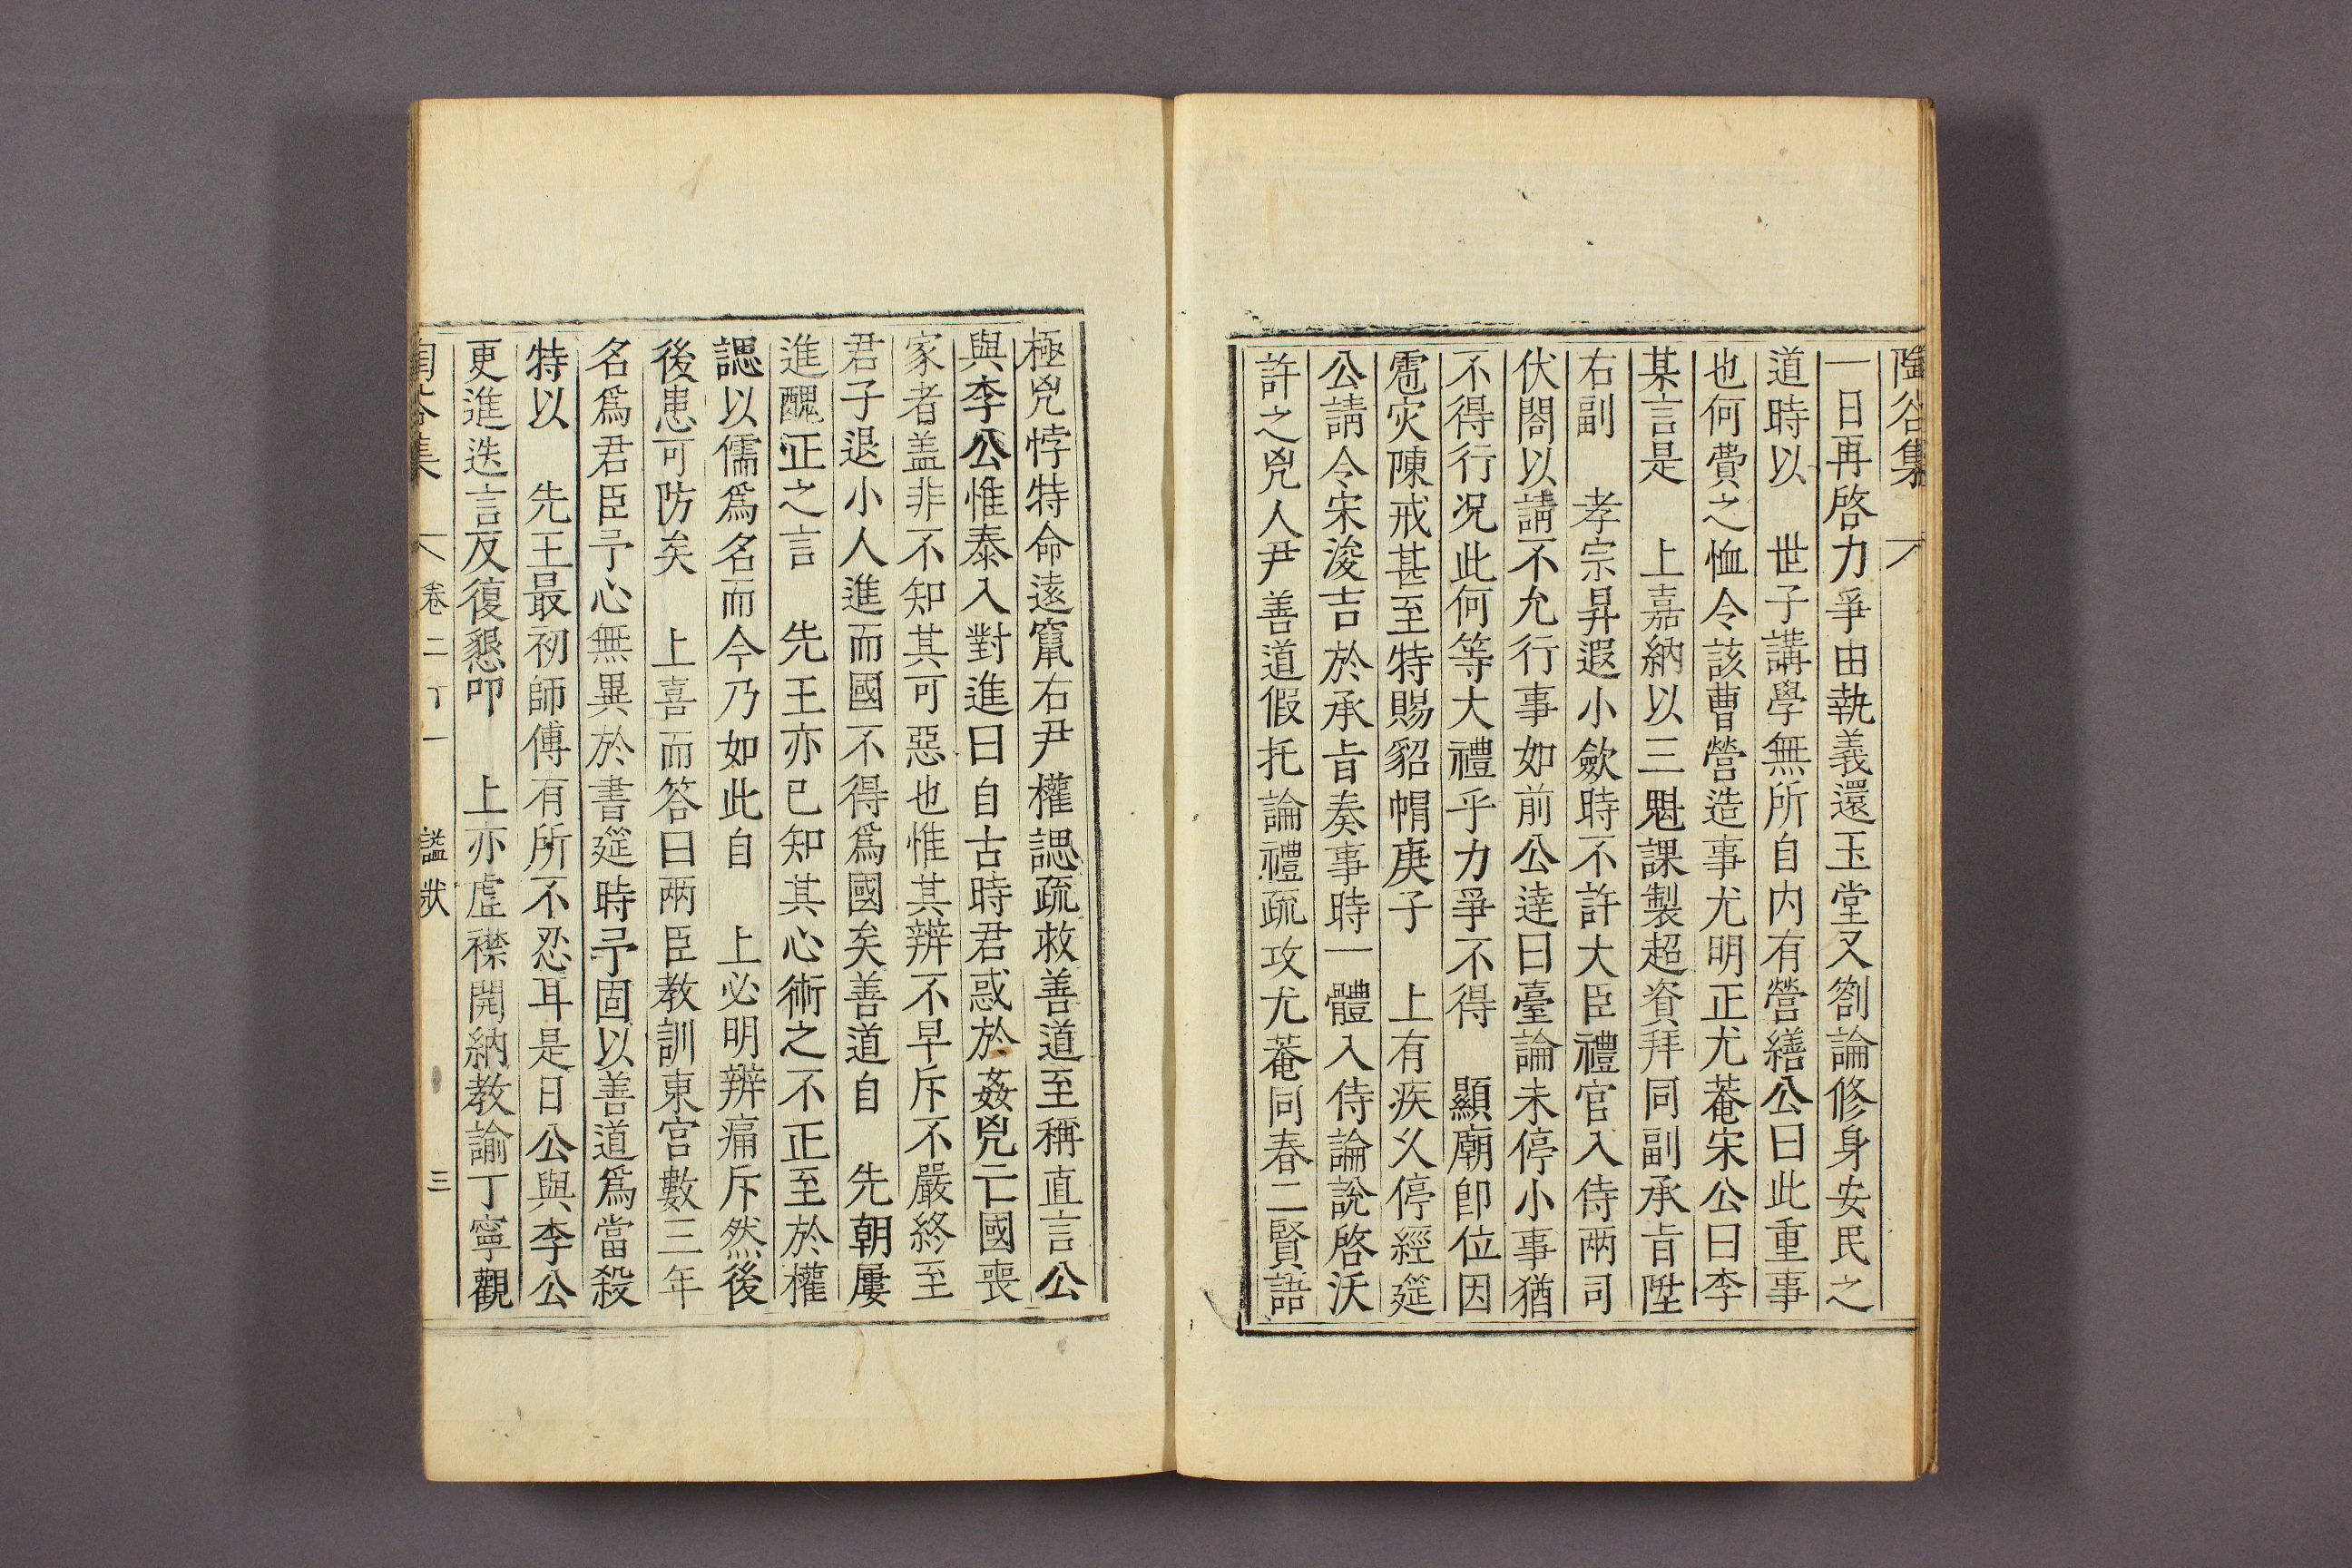 陶谷集
一日再啓力爭由執義還玉堂又劄論修身安民之
道時以 世子講學無所自内有營繕公曰此重事
也何費之恤令該曹營造事尤明正尤菴宋公曰李
某言是 上嘉納以三魁課製超資拜同副承旨陞
右副 孝宗昇遐小斂時不許大臣禮官入侍兩司
伏閤以請不允行事如前公達曰臺論未停小事猶
不得行况此何等大禮乎力爭不得 顯廟卽位因
雹灾陳戒甚至特賜貂帽庚子 上有疾乂停經筵
公請令宋浚吉於承旨奏事時一體入侍論說啓沃
許之兇人尹善道假托論禮疏攻尤菴同春二賢語
極兇悖特命遠竄右尹權諰疏救善道至稱直言公
與李公惟泰入對進曰自古時君惑於姦兇亡國喪
家者盖非不知其可惡也惟其辨不早斥不嚴終至
君子退小人進而國不得爲國矣善道自 先朝屢
進醜正之言 先王亦已知其心術之不正至於權
諰以儒爲名而今乃如此自 上必明辨痛斥然後
後患可防矣 上喜而答曰兩臣教訓東宮數三年
名爲君臣予心無異於書筵時予固以善道爲當殺
特以 先王最初師傅有所不忍耳是日公與李公
更進迭言反復懇叩 上亦虛襟開納教諭丁寧觀
陶谷集 卷二十一 諡狀 三